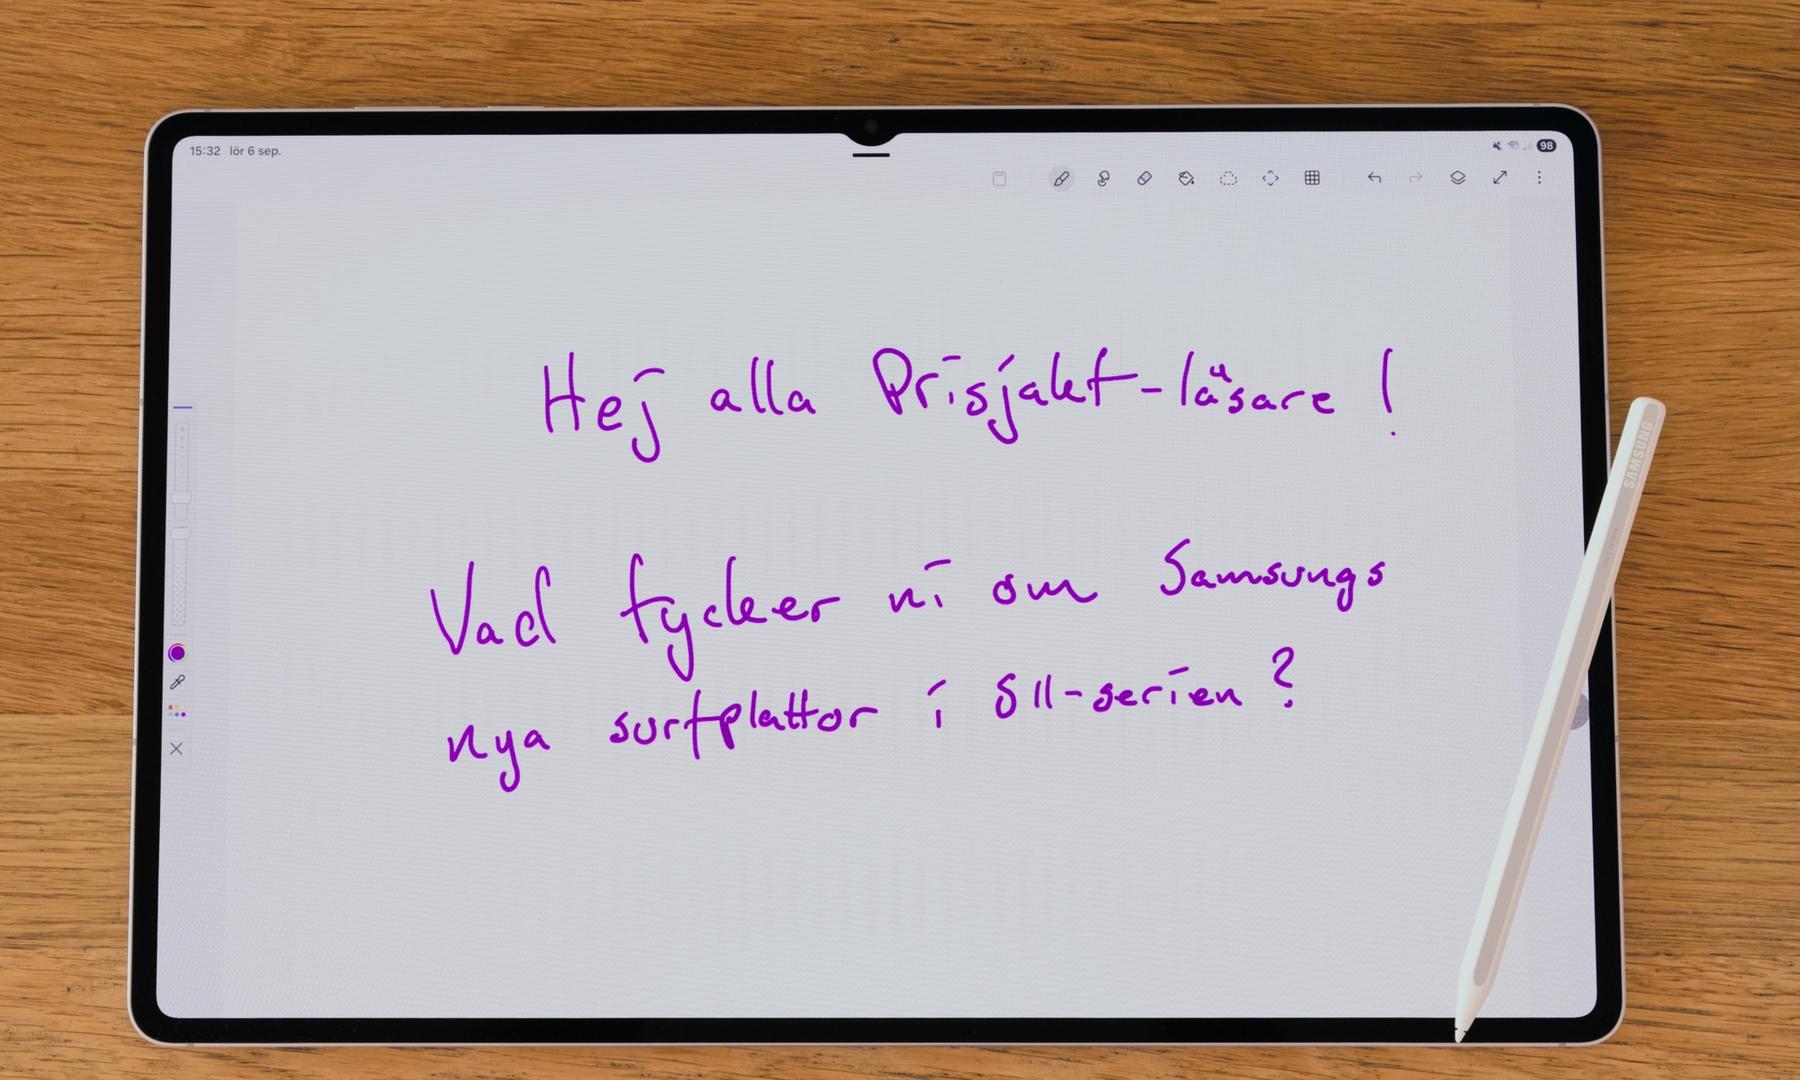 15:32 lör 6 sep.
98
Hej alla Prisjakt-läsare !
Vad tycker ni om Samsungs
nya surfplattor i S11-serien ?
SAMSUNG